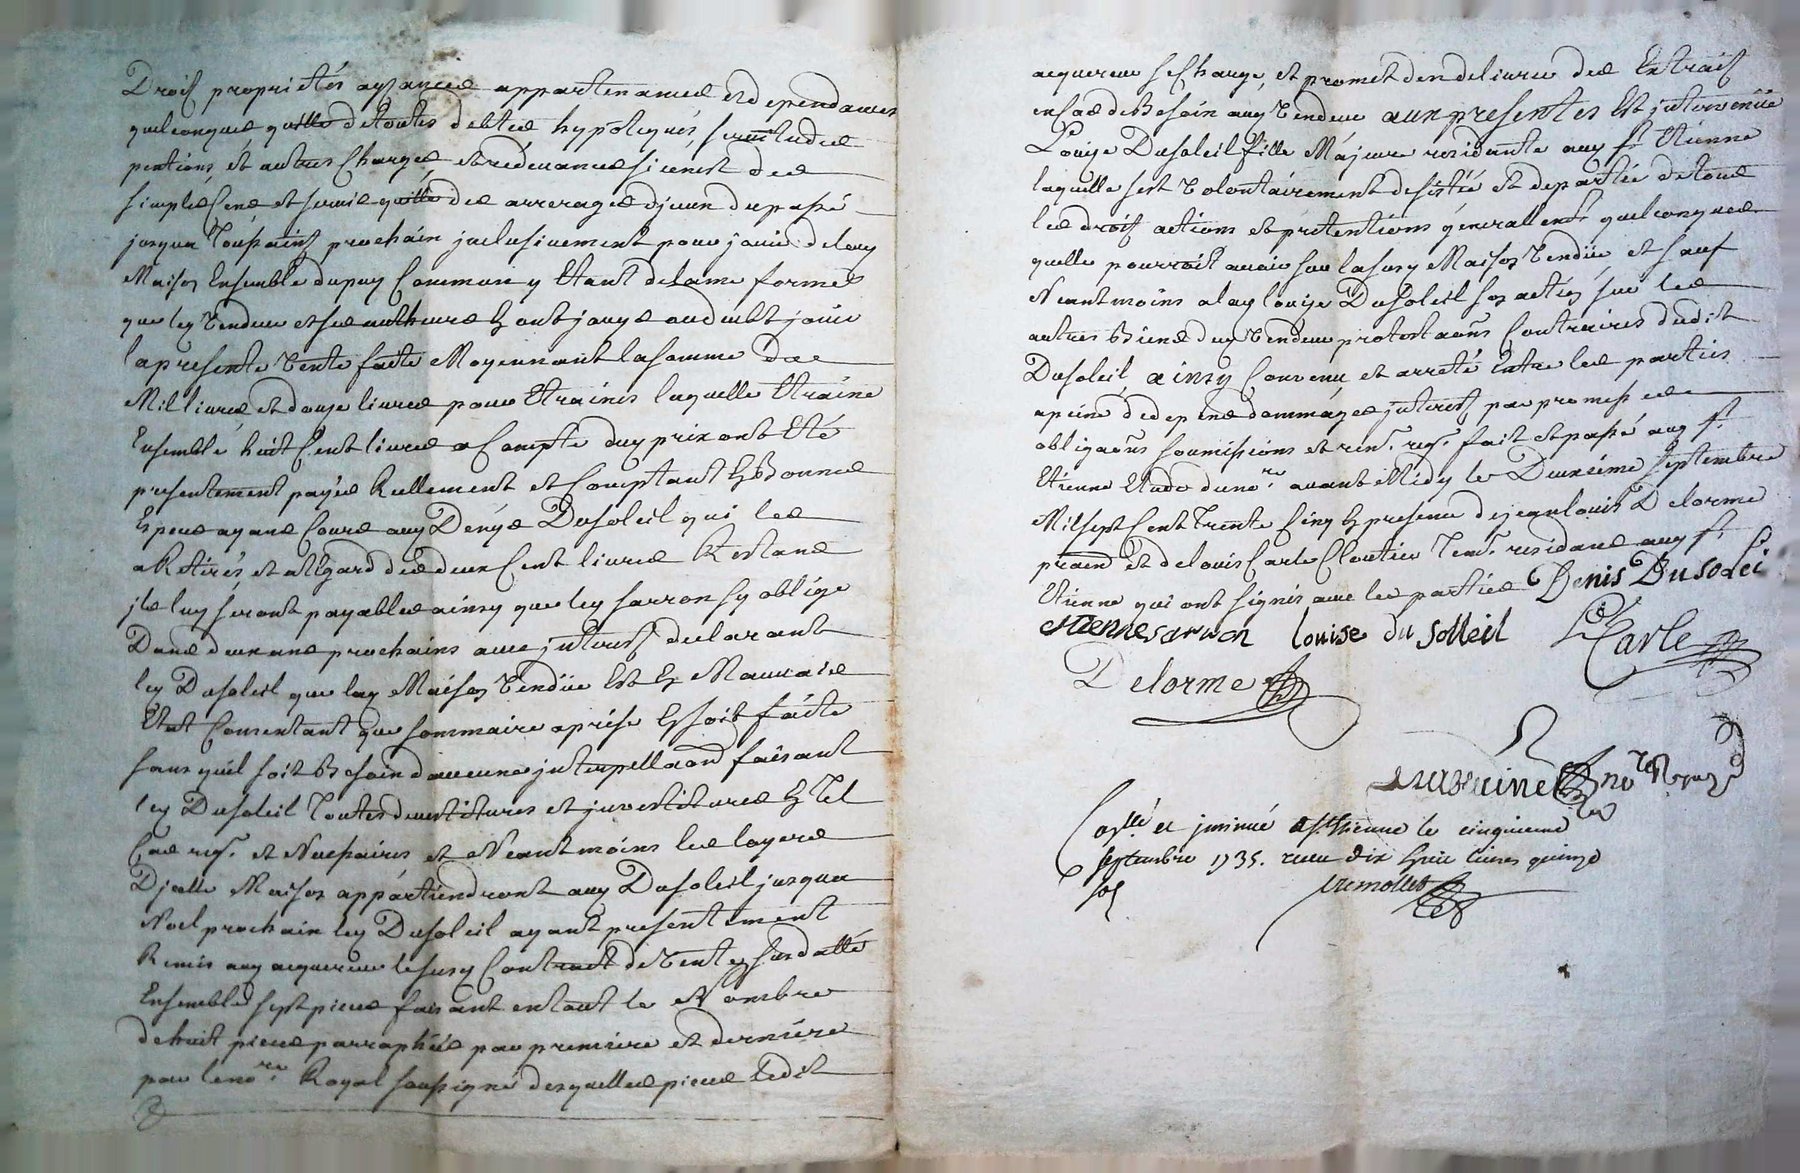 Droits proprietés aysances appartenances et dependances
quelconques quitte de toutes debtes hypoteques, servitudes
pentions, et autres charges et redevances si ce n'est des
simples cens et servis quitte des arrerages d'jceux du passé
jusqua Toussaints prochain jnclusivement pour jouir de lay
Maison Ensemble du puy Commun y Etant de la me forme
que ley Vendeur et ses autheurs En ont jouys ou deubt jouir
la presente Vente faite Moyennant la somme de
Mil livres et douze livres pour Etraines laquelle Etraine
Ensemble huit Cent livres a Compte duy prix ont Eté
presentement payés Reellement et Comptant En Bonnes
Especes ayans Cours auy Denys Dusoleil qui les
a Retirés et a l'Egard des deux Cent livres Restans
jls luy seront payables ainsy que ley Sarron s'y oblige
Dans deux ans prochains avec jnterest declarant
ley Dusoleil que lay Maison Vendüe Est En Mauvais
Etat Consentant que sommaire aprise En soit faite
sans quil soit Besoin d'aucune jnterpellaon faisant
ley Dusoleil Toutes devestitures et jnvestitures En Tel
Cas reqs. et Necessaires et Neantmoins les loyers
D'jcelle Maison appartiendront auy Dusoleil jusqua
Noel prochain ley Dusoleil ayant presentement
Remis auy acquereur le susy Contract de Vente susdatté
Ensemble sept pieces faisant en tout le Nombre
de huit pieces parraphées par premiere et derniere
par le nore. Royal soussigné desquelles pieces ledit
acquereur se charge, et promet d'en delivrer des Extraits
en Cas de Besoin auy Vendeur aux presentes Est jntervenüe
Loüise Dusoleil fille Majeure residante auy St Etienne
laquelle s'est Volontairement desistée et departie de tous
les droits actions et pretentions generallemt. quelconques
quelle pourroit avoir sur la susy Maison Vendüe et sauf
Neantmoins a lay loüise Dusoleil son action sur les
autres Biens duy Vendeur protestaons Contraires dudit
Dusoleil ainsy Convenu et arreté Entre les parties
a peine de depens dommages jnterests par promesses
obligaons soumissions et ren. reqs. fait et passé auy St.
Etienne Etude du nore. avant Midy le Deuxiéme Septembre
Mil sept Cent Trente Cinq En presence de jean louis Delorme
praend et de louis Carle Cloutier Tem. residans auy St.
Etienne qui ont signés avec les parties Denis Dusoleil
etienne sarron louise du solleil L Carle
Delorme
nore Royal
Con.llé et jnsinué a St Etienne le cinquieme
septembre 1735. receu dix huit livres quinze
sols
tremollet